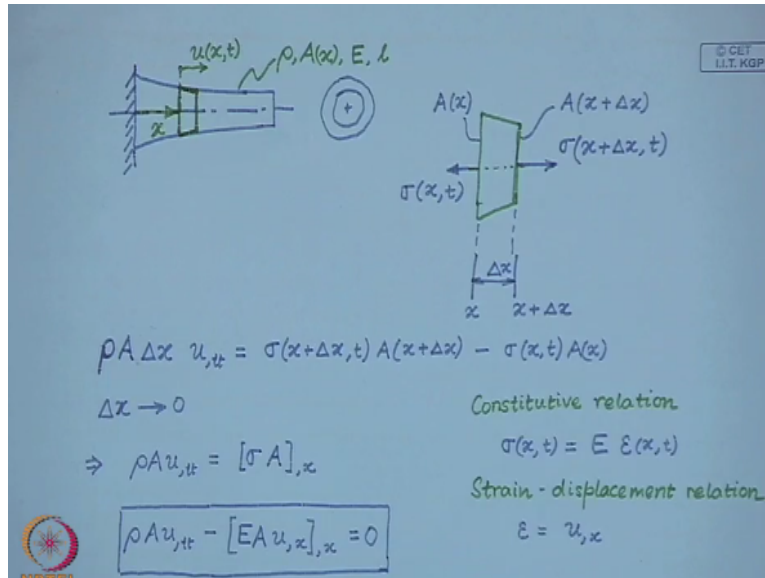 u(x,t)
ρ, A(x), E, l
© CET
I.I.T. KGP
x
A(x)
A(x+Δx)
σ(x+Δx,t)
σ(x,t)
Δx
x
x+Δx
ρAΔx u,tt = σ(x+Δx,t) A(x+Δx) - σ(x,t)A(x)
Δx → 0
⇒ ρAu,tt = [σA],x
ρAu,tt - [EAu,x],x = 0
Constitutive relation
σ(x,t) = E ε(x,t)
Strain-displacement relation
ε = u,x